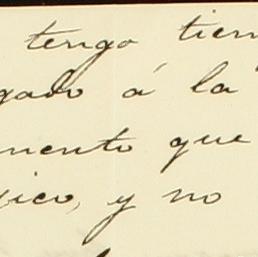 tengo tiem
gado á la
mento que
gico, y no